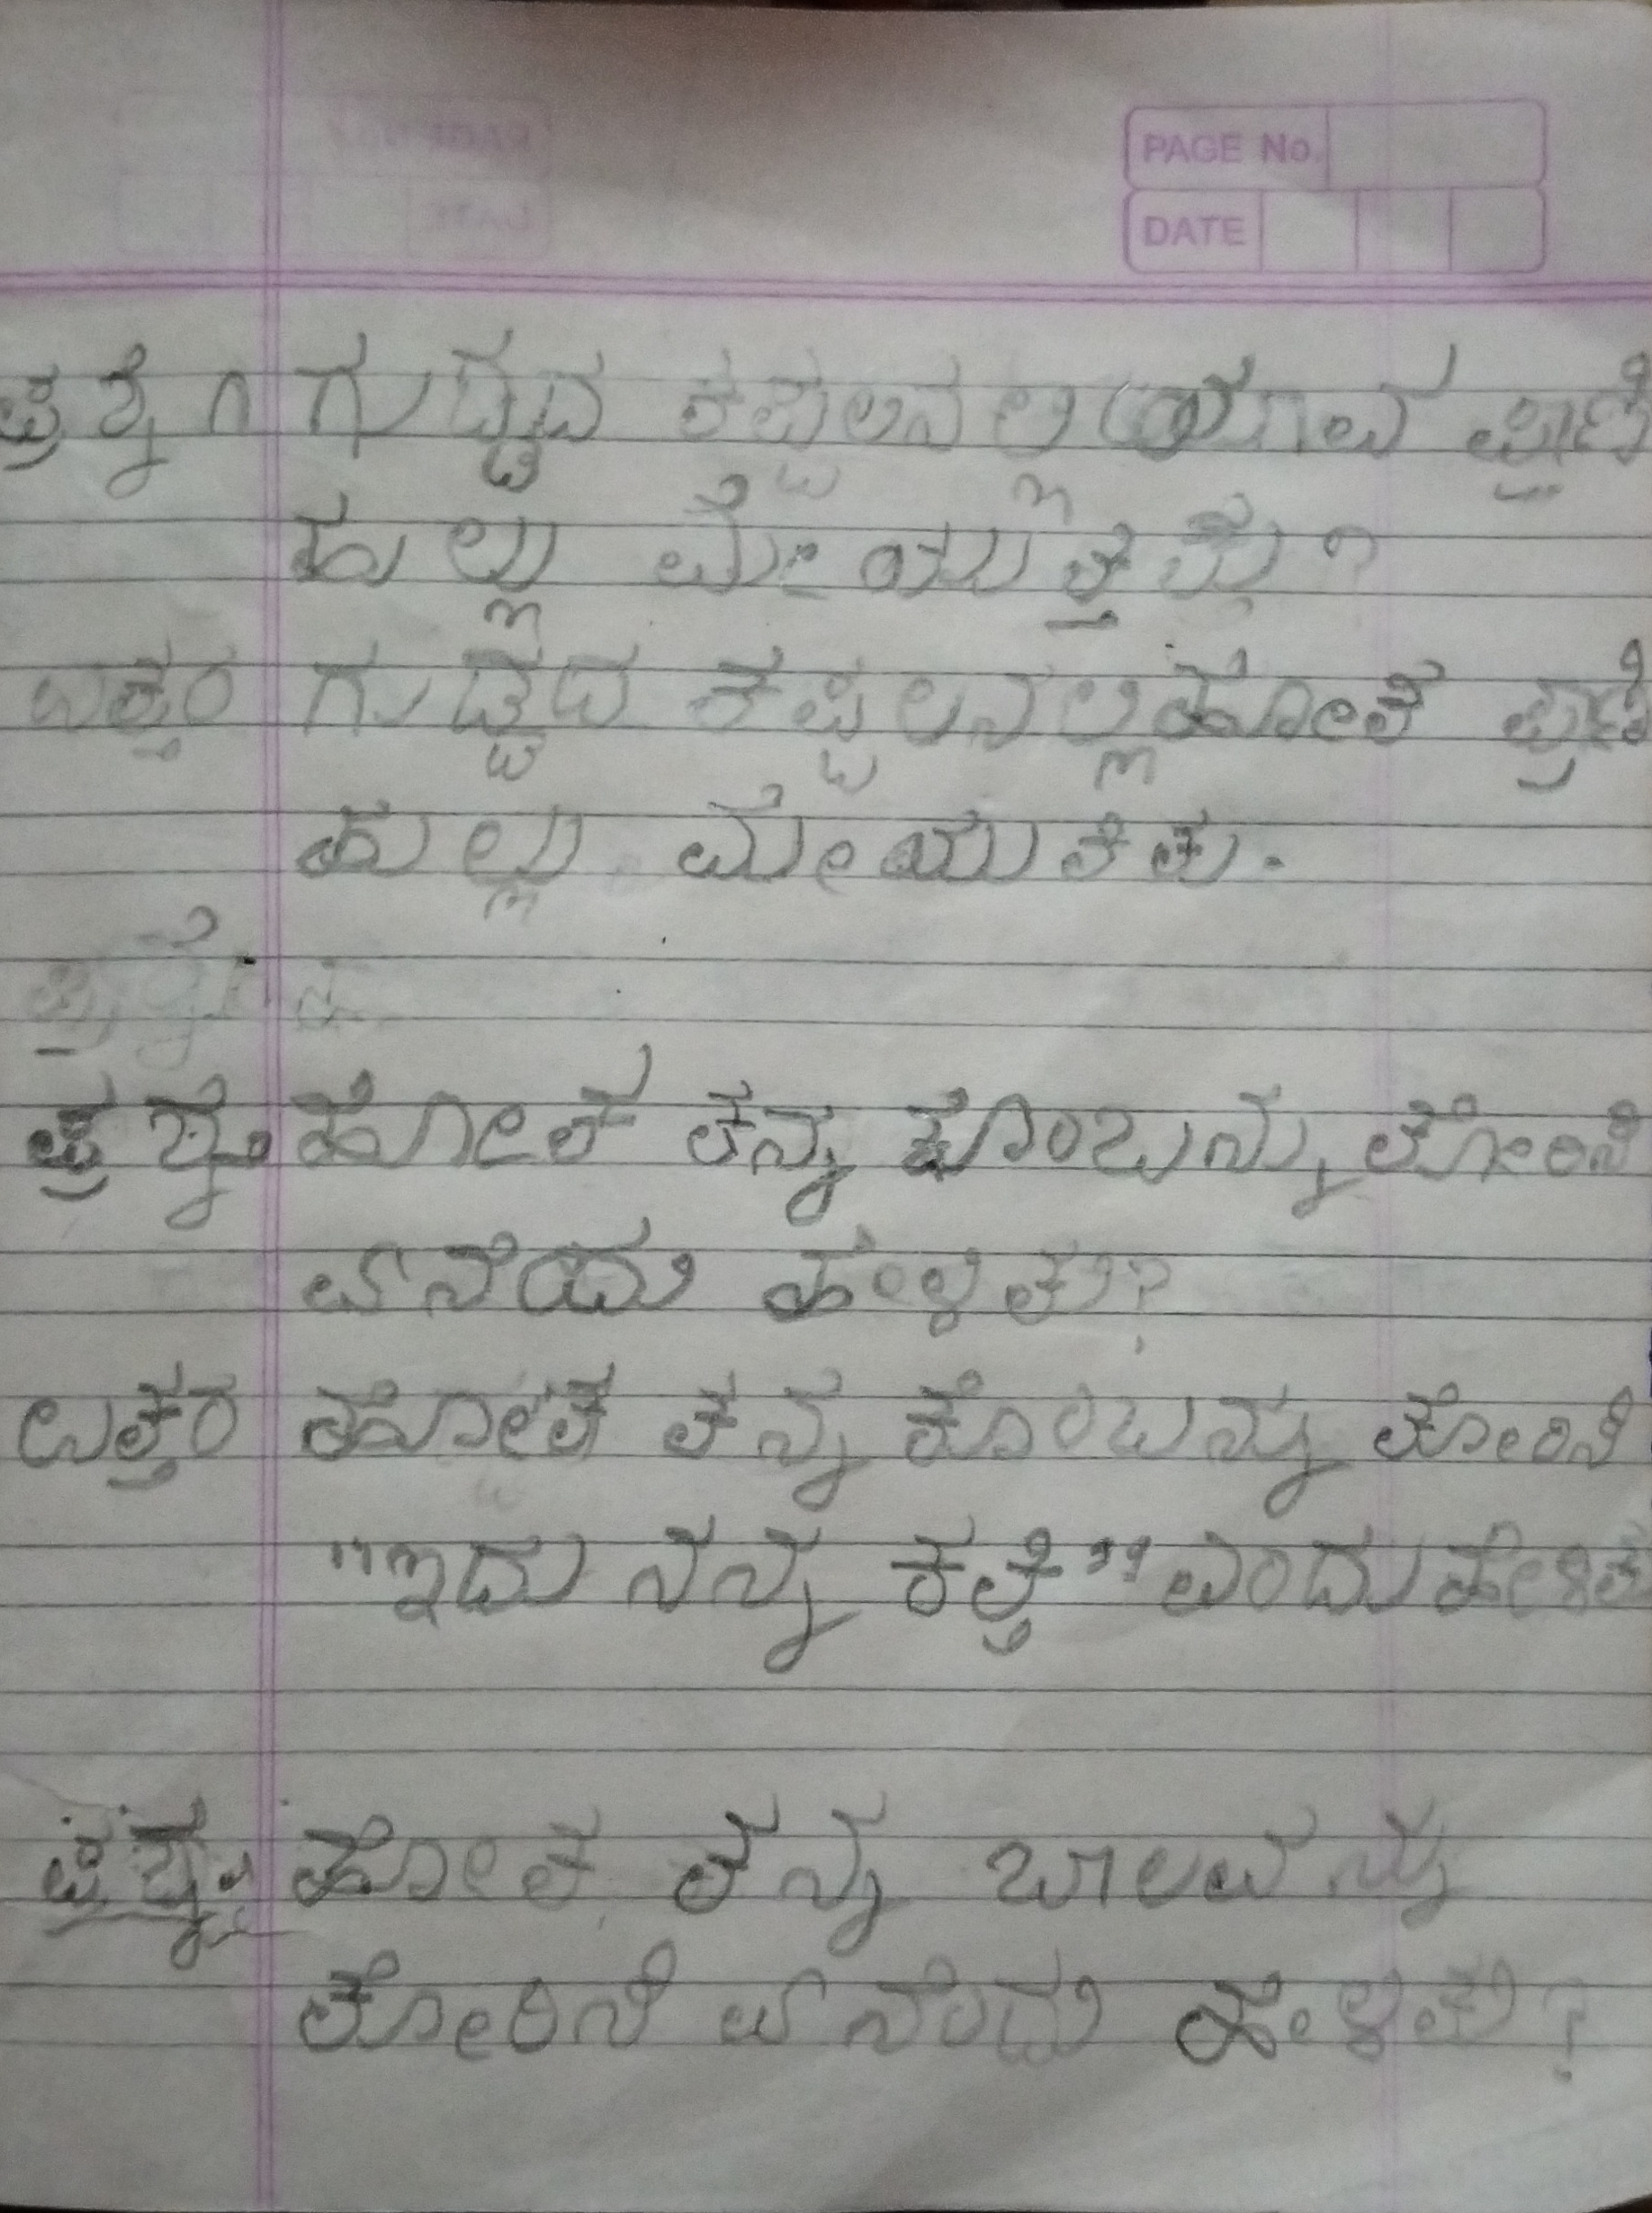 PAGE No.
DATE
ಪ್ರಶ್ನೆ ೧ ಗುಡ್ಡದ ತಪ್ಪಲಿನಲ್ಲಿ ಯಾವ ಪ್ರಾಣಿ
ಹುಲ್ಲು ಮೇಯುತ್ತಿತ್ತು?
ಉತ್ತರ ಗುಡ್ಡದ ತಪ್ಪಲಿನಲ್ಲಿ ಹೋತ ಪ್ರಾಣಿ
ಹುಲ್ಲು ಮೇಯುತಿತು.
ಪ್ರಶ್ನೆ ಹೋತ ತನ್ನ ಕೊಂಬನ್ನು ತೋರಿಸಿ
ಏನೆಂದು ಹೇಳಿತು?
ಉತ್ತರ ಹೋತ ತನ್ನ ಕೊಂಬನ್ನು ತೋರಿಸಿ
"ಇದು ನನ್ನ ಕತ್ತಿ" ಎಂದು ಹೇಳಿತು
ಪ್ರಶ್ನೆ: ಹೋತ ತನ್ನ ಬಾಲವನ್ನು
ತೋರಿಸಿ ಏನೆಂದು ಹೇಳಿತು?